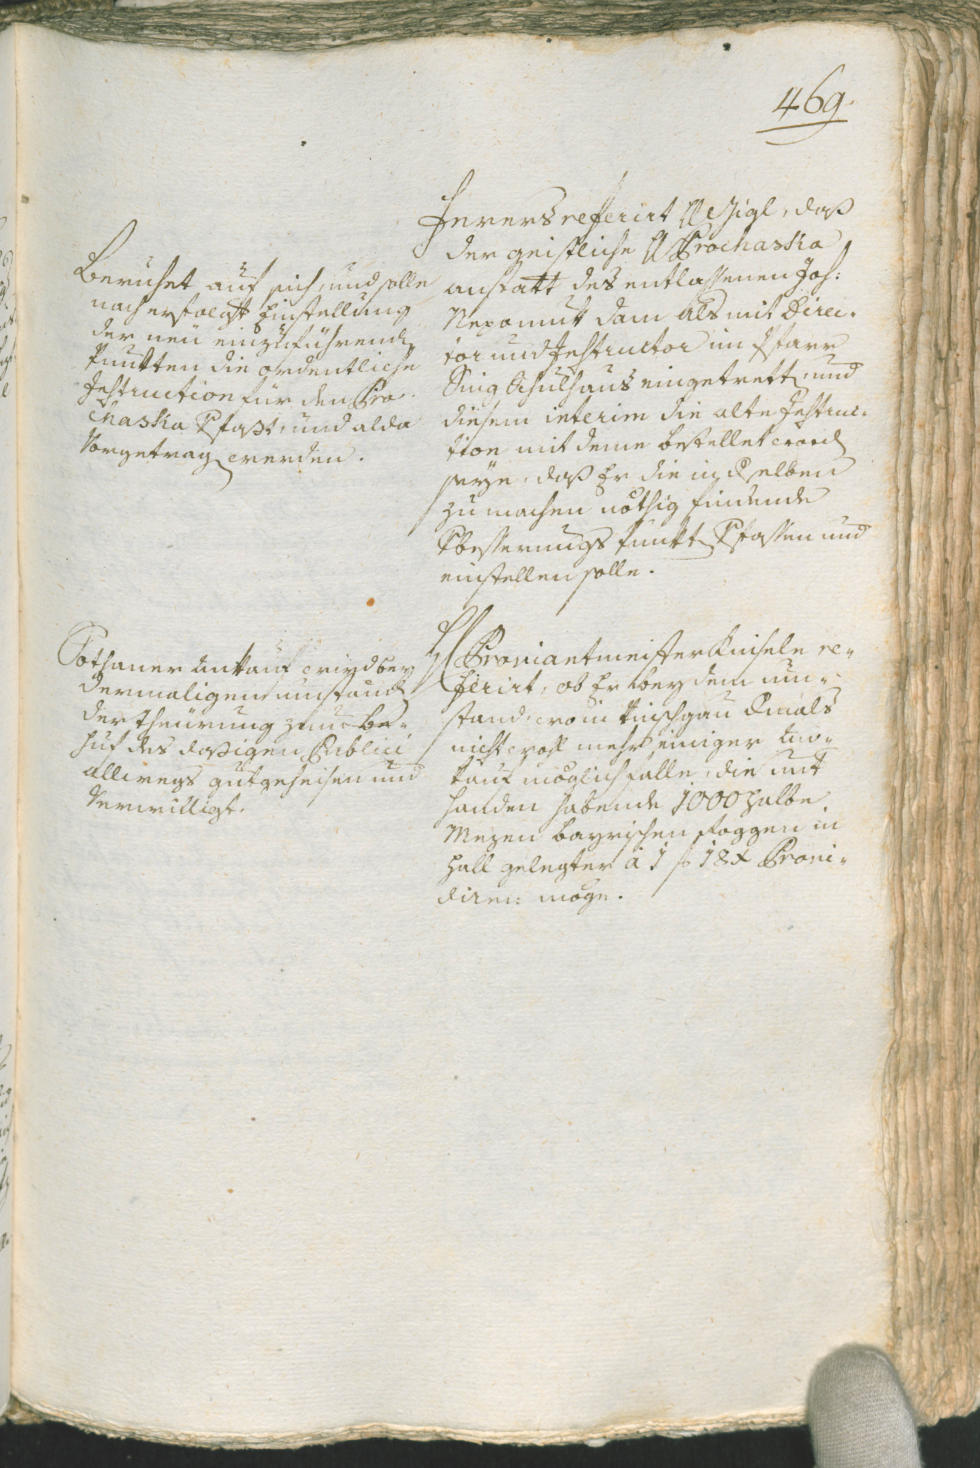 469.
Ferers referirt H Gigl, daß
der geistliche H Prochaska
anstatt des entlassenen Joh:
Nepomuk dam als mit Direc-
tor und Instructor im Pfarr
Sing Schulhaus eingetrett, und
diesem interim die alte Instruc-
tion mit deme bestellet word
seye, daß Er die in dselben
zu machen nöthig findende
Vbesserungs punkt Vfassen und
einstellen solle.
Beruhet auf sich, und solle
nach erfolgt Einstellung
der neu einzuführend
Puncten die ordentliche
Instruction für den Pro-
chaska Vfast, und alda
Vorgetrag werden.
H Proviantmeister Kniseln re-
ferirt, ob Er bey dem um-
stand, wo in Vinschgau dmals
nicht woll mehr einiger An-
kauf möglich falle, die mit
handen habende 1000 halbe
Mezen bayrischen Roggen in
Hall gelegter à 1 f 18 x Provi-
diren: möge.
Sothaner Ankauf wird bey
dermaligen umständ
der theurung zum be-
huf des dasigen Publici
allwegs gutgeheisen und
Verwilligt.